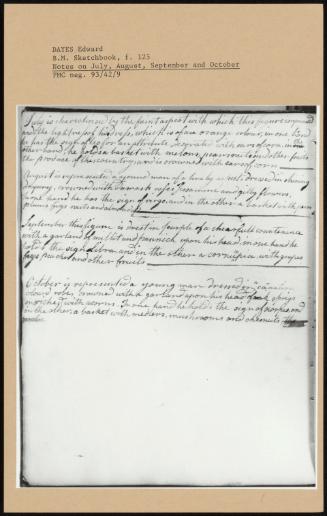 DAYES Edward
B.M. Sketchbook, f. 125
Notes on July, August, September and October
PMC neg. 93/42/9
July is charactized by the faint aspect with which this figure
and the lightness of his dress, which is of an orange colour, in one hand
he has the sign of leo for an attribute decorated with ears of corn, in the
other hand, he holds a basket with melons, and other fruits
the produce of the country, and is crowned with ears of corn.
August is represented a young man of a dressed in
drapery, crowned with damask roses Jessamine and gilly flowers,
in one hand he has the sign of virgo, and in the other a basket with pears
plums figs nuts and almonds
September this figure is drest in purple of a chearfull countenance
with a garland of millet and pannech upon his head, in one hand he
holds the sign libra and in the other a cornucopia with grapes
figs peaches and other fruits.
October is represented a young man dressed in
colour'd robe, crowned with a garland upon his head
with acorns. In one hand he holds the sign of scorpio and
in the other a basket with medlers, mushrooms and chesnuts